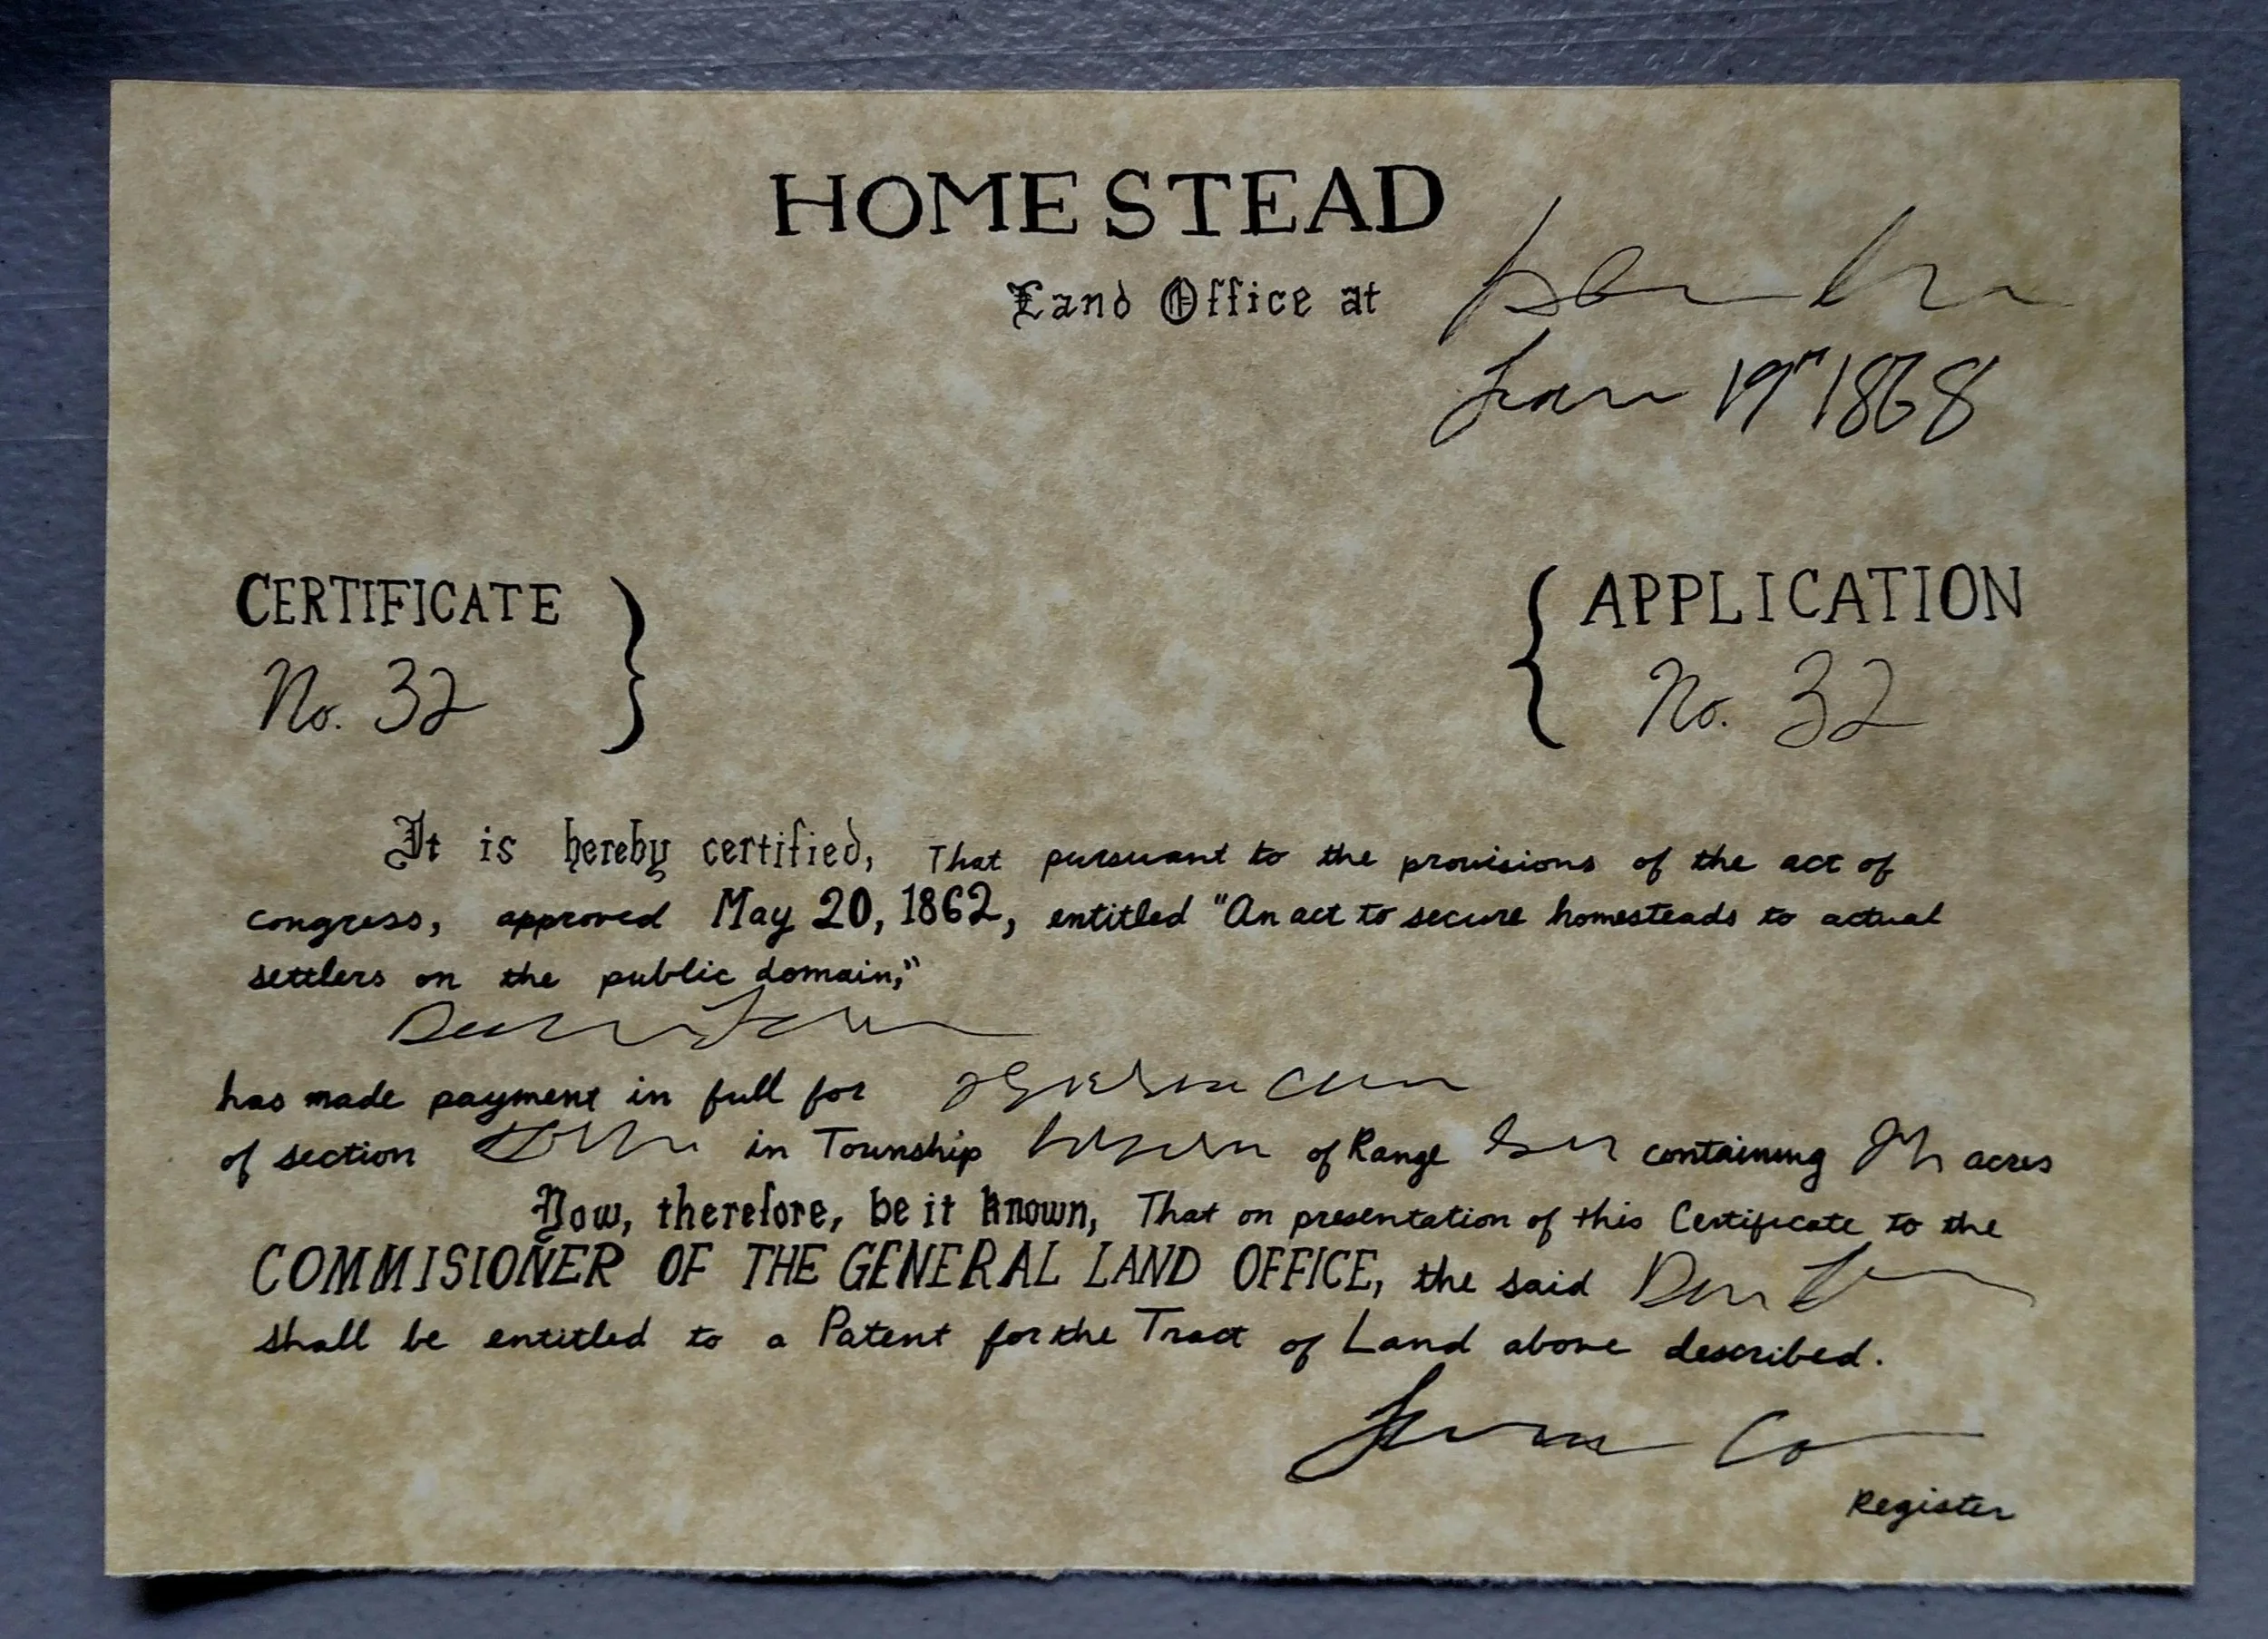 HOMESTEAD
Land Office at
19th 1868
CERTIFICATE
No. 32
APPLICATION
No. 32
It is hereby certified, That pursuant to the provisions of the act of
congress, approved May 20, 1862, entitled "An act to secure homesteads to actual
settlers on the public domain,"
has made payment in full for
of section in Township of Range containing acres
Now, therefore, be it known, That on presentation of this Certificate to the
COMMISIONER OF THE GENERAL LAND OFFICE, the said
shall be entitled to a Patent for the Tract of Land above described.
Register